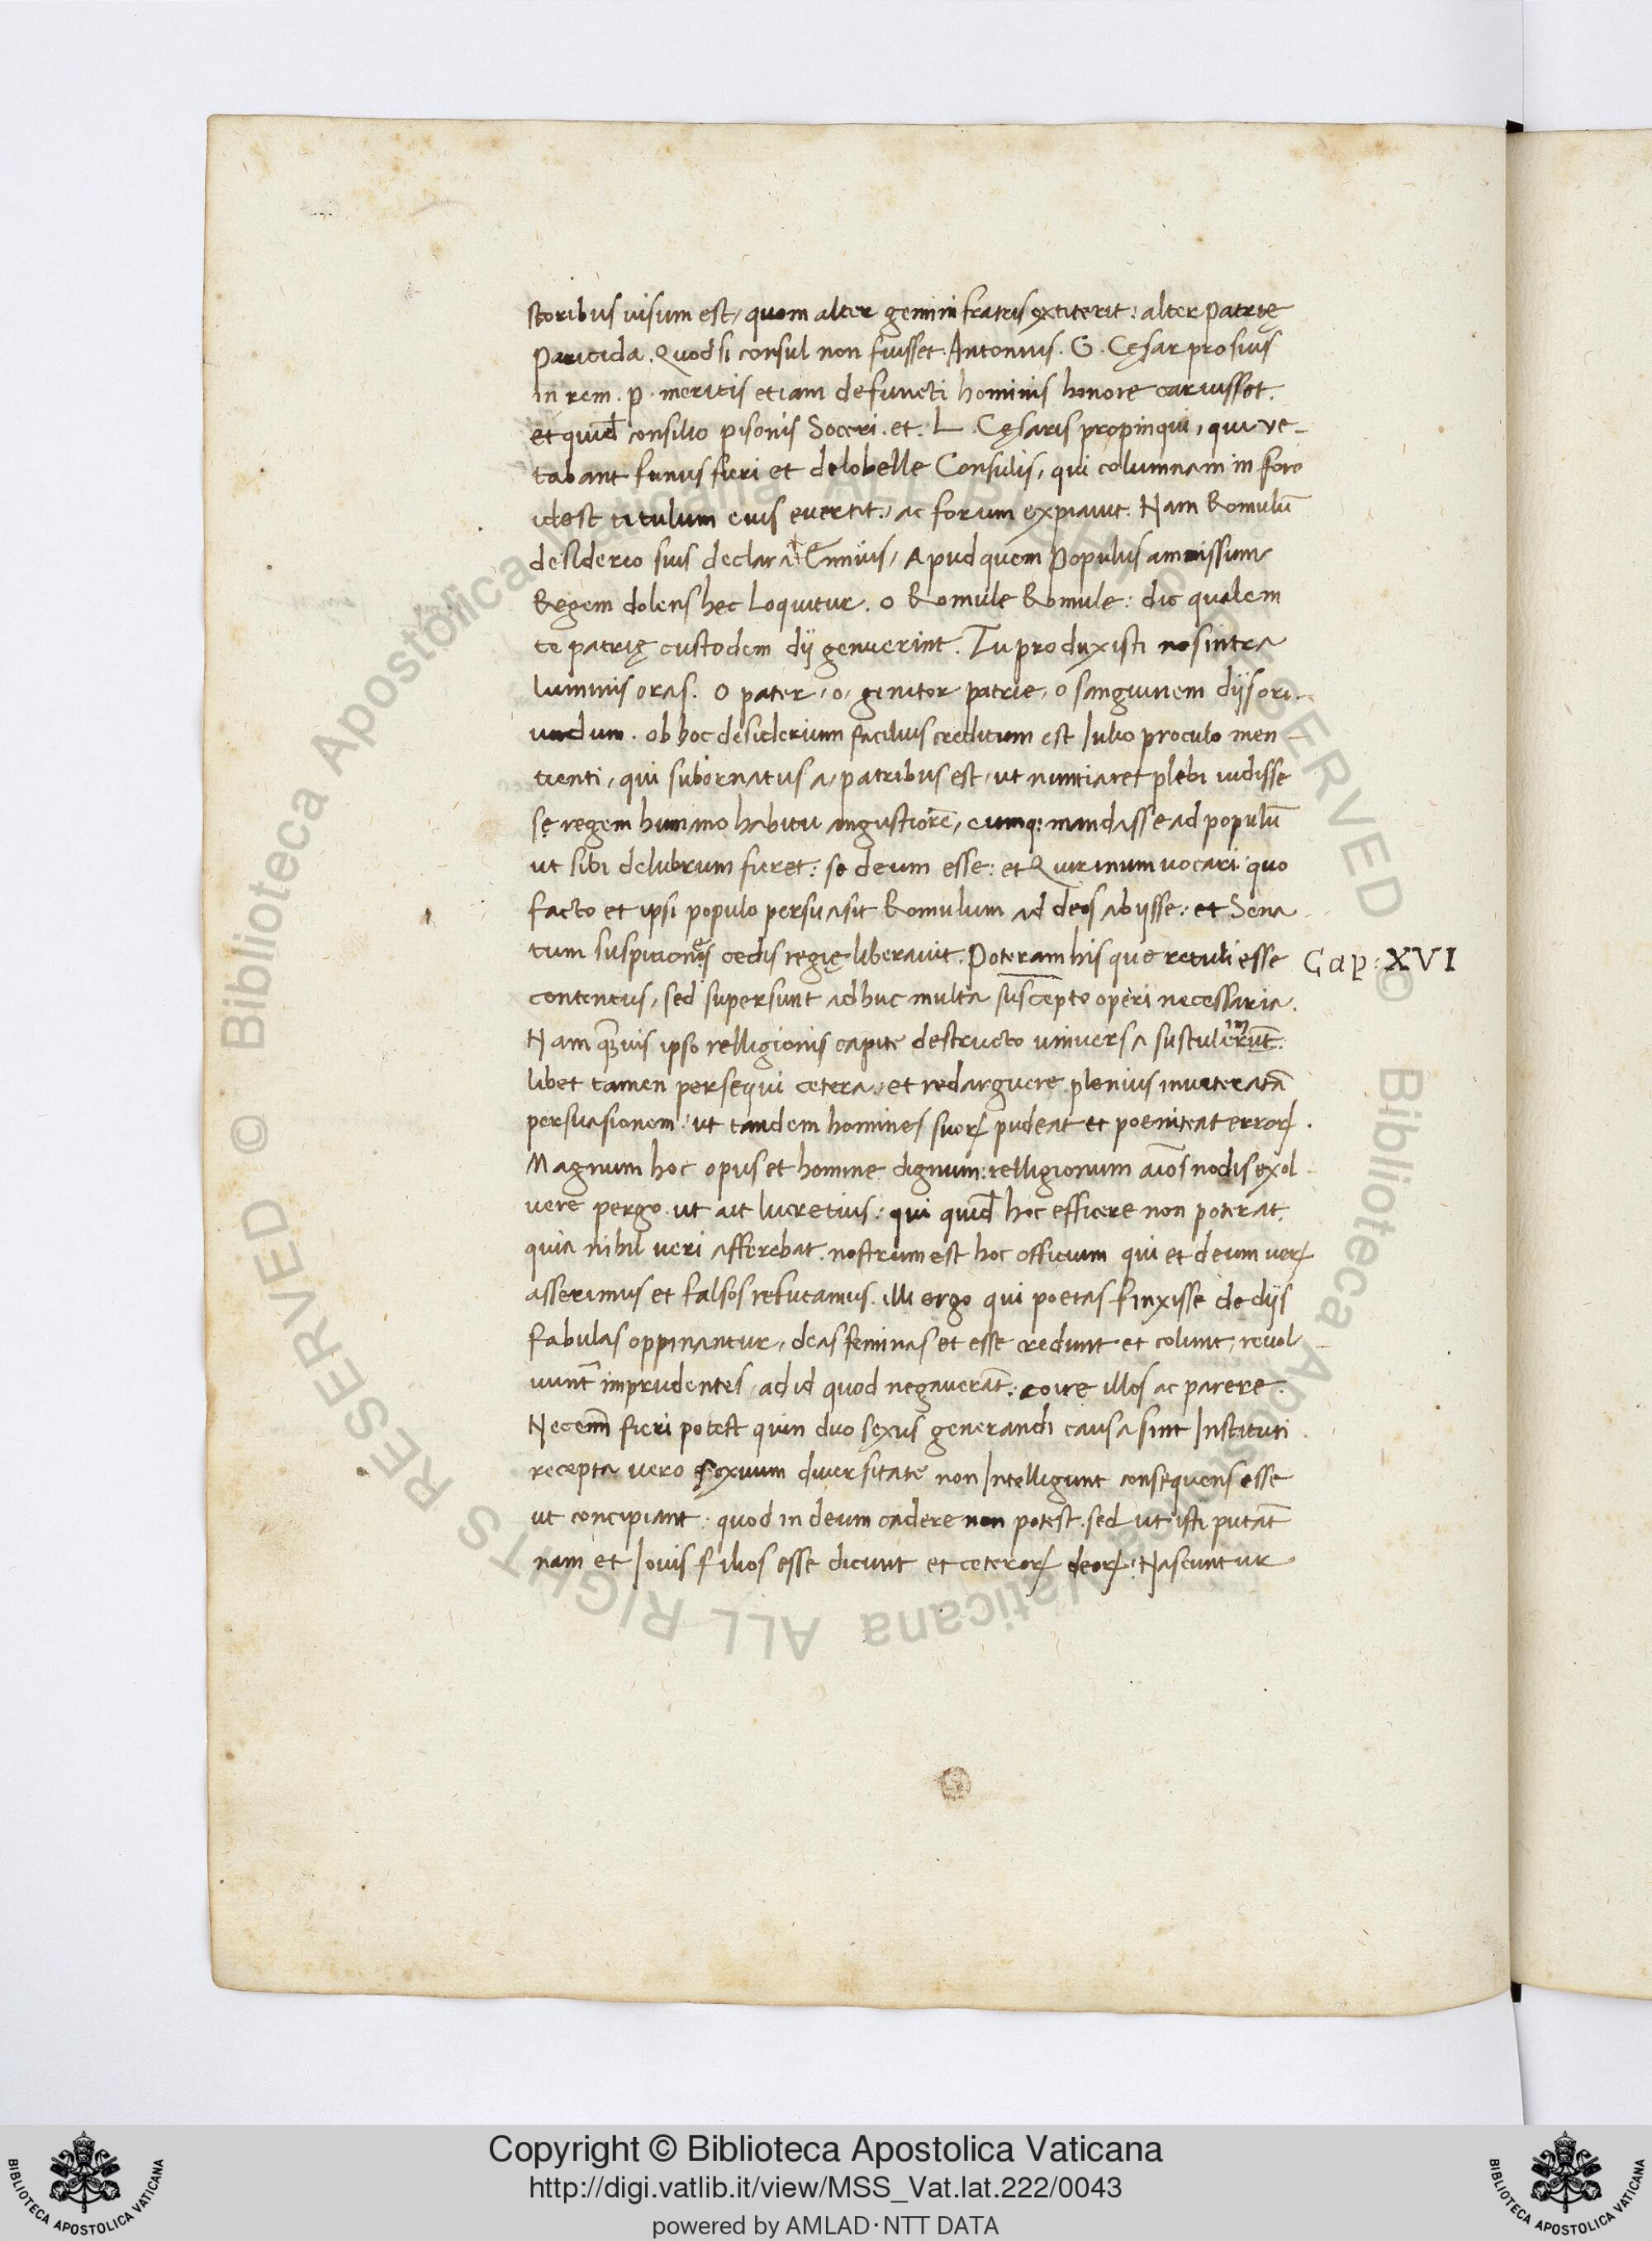 storibus uisum est, quom alter gemini fratris extiterit: alter patrię
paricida. Quod si consul non fuisset Antonius. G. Cęsar pro suis
in rem. p. meritis etiam defuncti hominis honore caruisset.
et quid̃ consilio pisonis Soceri. et. L. Cęsaris propinqui, qui ve-
tabant funus fieri et dolobelle Consulis, qui columnam in foro
idest titulum eius euertit., ac forum expiauit. Nam Romulū
desiderio suis declarat Ennius, Apud quem Populus amissum
Regem dolens hec loquitur. o Romule Romule: dic qualem
te patrię custodem dij genuerint. Tu produxisti nos intra
luminis oras. O pater, o, genitor patrie, o sanguinem dijs ori-
undum. ob hoc desiderium facilius creditum est Iulio proculo men-
tienti, qui subornatus a, patribus est, ut nuntiaret plebi uidisse
sę regem humano habitu angustiorē, eumq; mandasse ad populū
ut sibi delubrum fieret: se deum esse: et Quirinum uocari: quo
facto et ipsi populo persuasit Romulum ad deos abijsse: et Sena
tum suspitiones cedis regię liberauit. Poteram his que retuli esse
Cap: XVI
contentus, sed supersunt adhuc multa suscepto operi necessaria.
Nam q̄uis ipso relligionis capite destructo uniuersa sustulerūt.
im
libet tamen persequi cetera, et redarguere plenius inueteratā
persuasionem: ut tandem homines suoꝝ pudeat et poeniteat erroꝝ.
Magnum hoc opus et homine dignum: relligionum aīos nodis exol-
uere pergo ut ait lucretius: qui quid̃ hoc efficere non poterat,
quia nihil ueri afferebat. nostrum est hoc officium qui et deum ueꝝ
asserimus et falsos refutamus. illi ergo qui poetas finxisse de dijs
fabulas oppinantur, deas feminas et esse credunt et colunt, reuol-
uunt̃ imprudentes, ad id quod negauerāt: coire illos ac parere.
Nec enī fieri potest quin duo sexus generandi causa sint Instituti.
recepta uero sexuum diuersitate non Intelligunt consequens esse
ut concipiant: quod in deum cadere non potest. sed ut isti putāt
nam et Iouis filios esse dicunt et ceteroꝝ deoꝝ: Nascuntur
Copyright © Biblioteca Apostolica Vaticana
http://digi.vatlib.it/view/MSS_Vat.lat.222/0043
powered by AMLAD·NTT DATA
BIBLIOTECA APOSTOLICA VATICANA
BIBLIOTECA APOSTOLICA VATICANA
© Biblioteca Apostolica Vaticana ALL RIGHTS RESERVED © Biblioteca Apostolica Vaticana ALL RIGHTS RESERVED